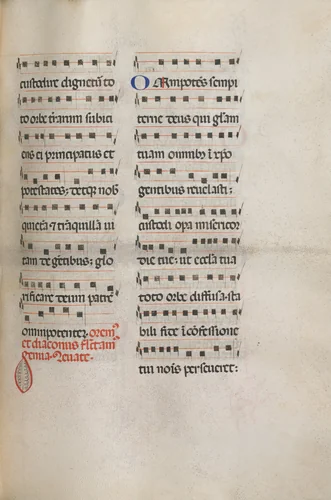 custodire dignetur to
to orbe terrarum subici
ens ei principatus et
potestates; detque nob
quieta ⁊ tranquilla ui
tam degentibus; glo
rificare deum patrē
omnipotentez. orem⁹
et diaconus flectam⁹
genua. Leuate.
Omnipotēs sempi
terne deus qui glam
tuam omnibz ī xpo
gentibus reuelasti;
custodi opa misericor
die tue: ut ecclia tua
toto orbe diffusa. sta
bili fide ī confessione
tui nois perseueret: